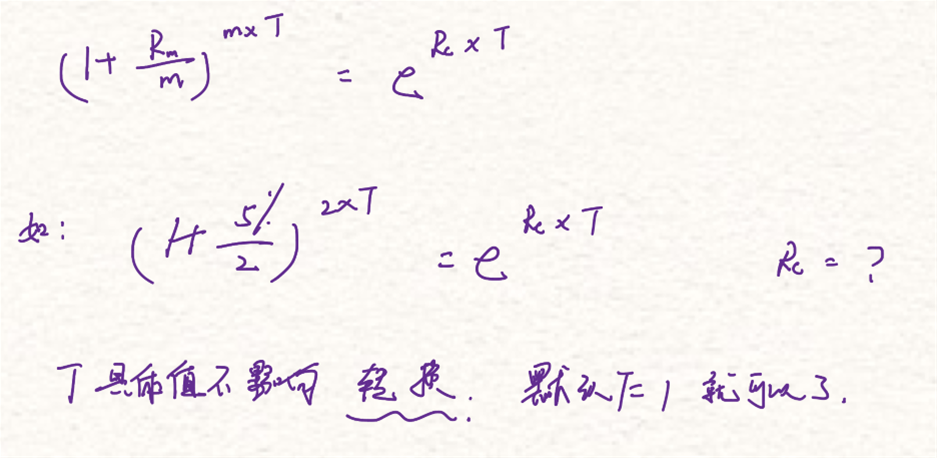 (1+ Rm/m)^(m×T) = e^(Rc×T)
如: (1+ 5%/2)^(2×T) = e^(Rc×T) Rc = ?
T具体值不影响 转换. 默认T=1 就可以了.